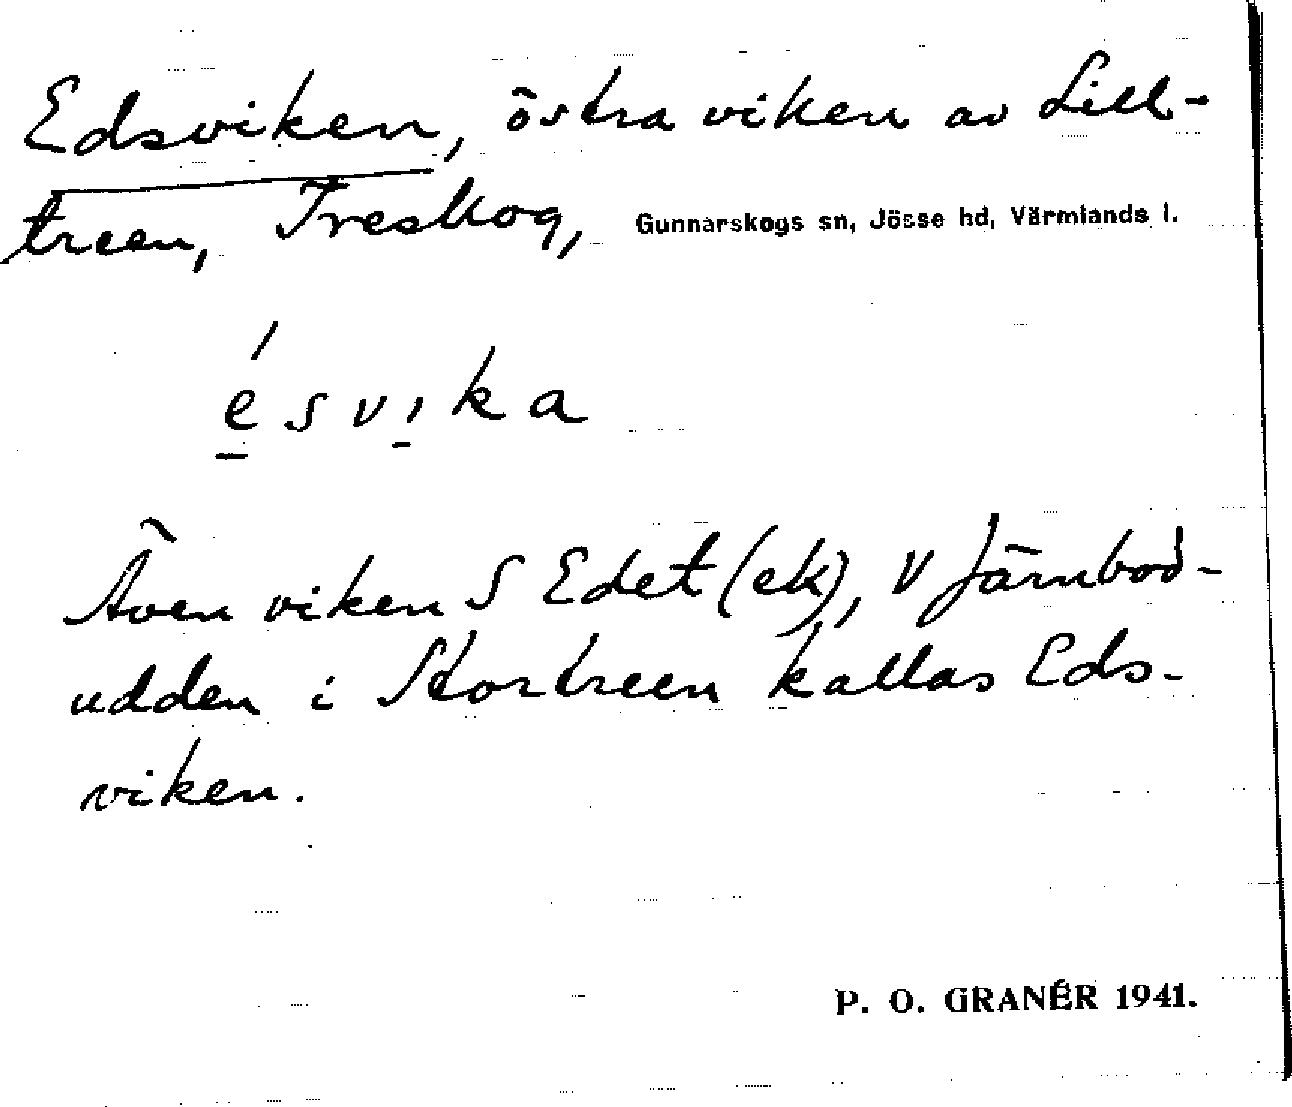 Edsviken, östra viken av Lill-
treen, Treskog, Gunnarskogs sn, Jösse hd, Värmlands l.
é̱svi̱ka
Även viken S Edet (ek), V Järnbod-
udden i Stortreen kallas Eds-
viken.
P. O. GRANÉR 1941.